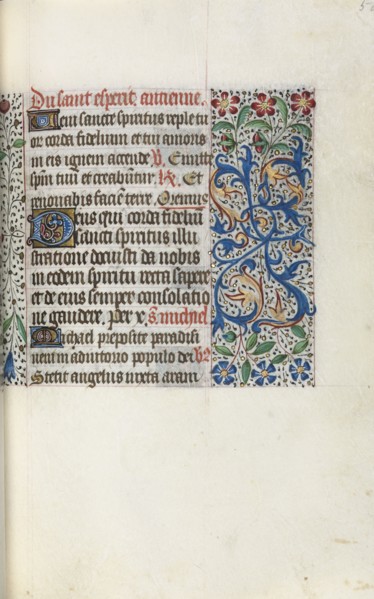 Du saint esperit. antienne.
Veni sancte spiritus reple tu
or corda fidelium et tui amoris
in eis ignem accende. V. Emitte
spm tuū et creabūtur. R. Et
renovabis faciē terre. Oremus
Deus qui corda fideliū
sancti spiritus illu
stratione docuisti da nobis
in eodem spiritu recta sapere
et de eius semper consolatio
ne gaudere. per x. S. michael
Michael preposite paradisi
veni in adiutorio populo dei V.
Stetit angelus iuxta aram